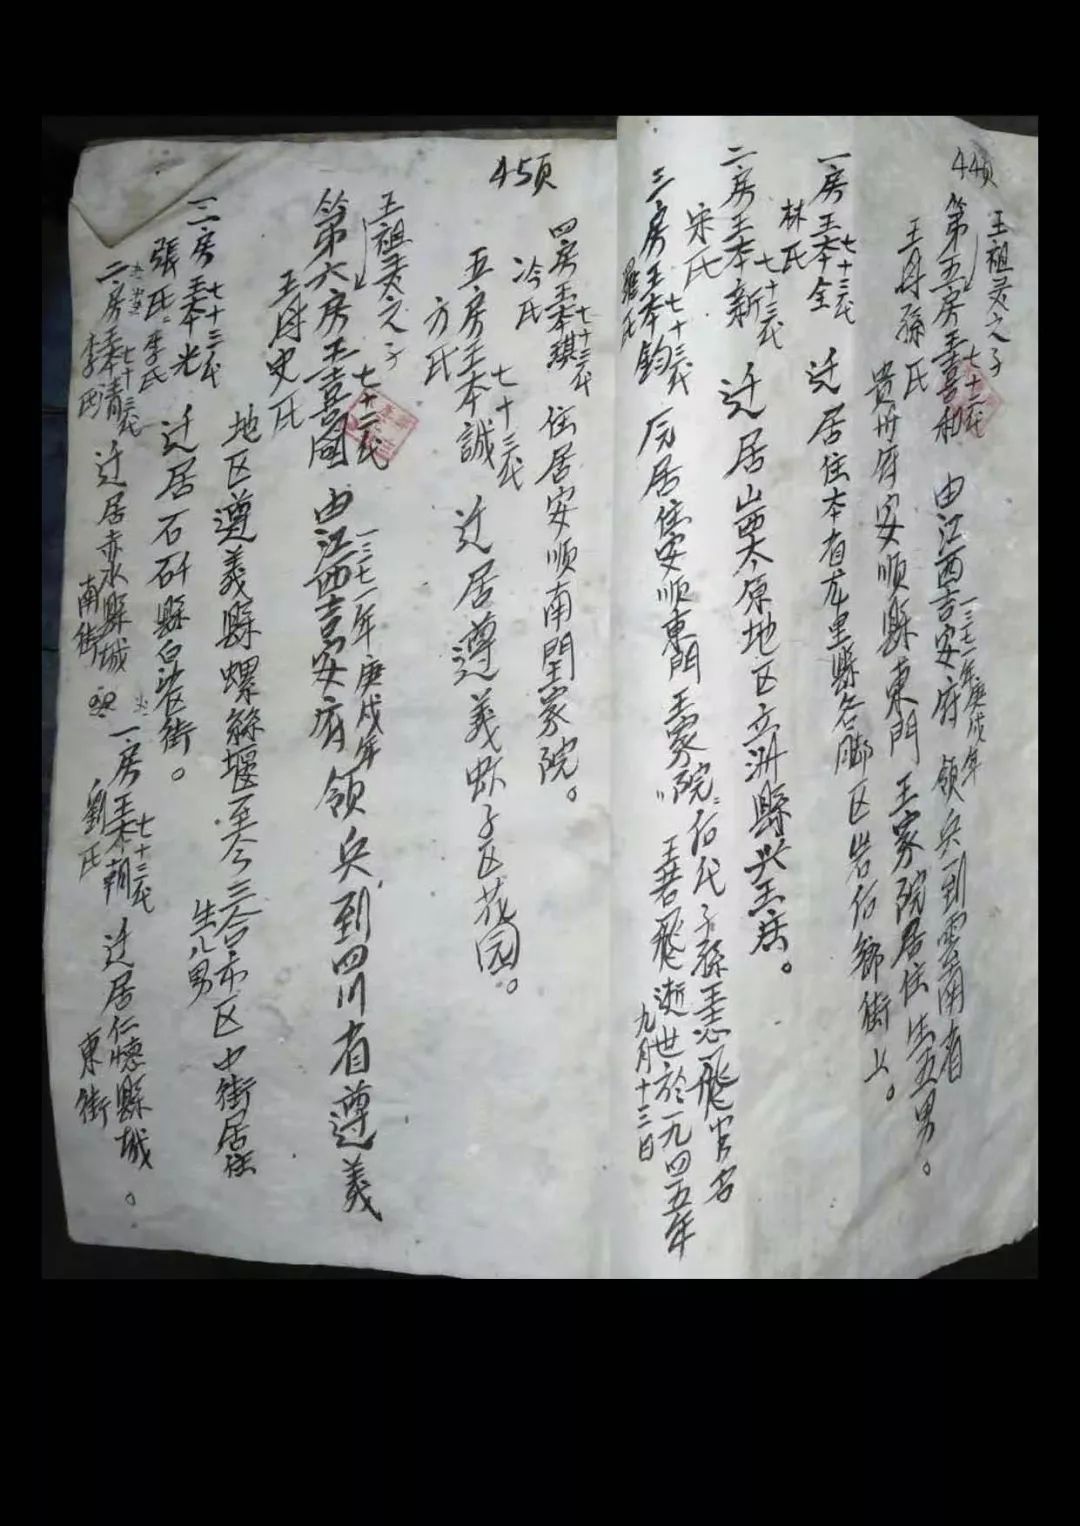 44页
王祖灵之子
第五房王喜和 七十二代 由江西吉安府 一三七一年庚戌年 领兵到雲南省
王母孫氏 貴州府安顺縣東門王家院居住生五男。
一房王本全 七十三代 迁居住本省龙里縣谷脚区岩后鄉街上。
林氏
二房王本新 七十三代 迁居山西太原地区立洲縣兴王庄。
宋氏
三房王本鈞 七十三代 居住安顺東門王家院:后代子孫王若飛官名
羅氏 "王若飛逝世於一九四五年
九月十三日
45页
四房王本琪 七十三代 住居安顺南門王家院。
冷氏
五房王本誠 七十三代 迁居遵義虾子区花园。
方氏
王祖灵之子
第六房王喜國 七十二代 由江西吉安府 一三七一年庚戌年 领兵到四川省遵義
王母史氏 地区遵義縣螺絲堰至今三合市区中街居住
生八男
三房王本光 七十三代 迁居石矸縣白沙区街。
張氏:李氏
二房王本清 七十三代 迁居赤水縣城南街
李氏
一房王本朝 七十三代 迁居仁懷縣城東街。
劉氏